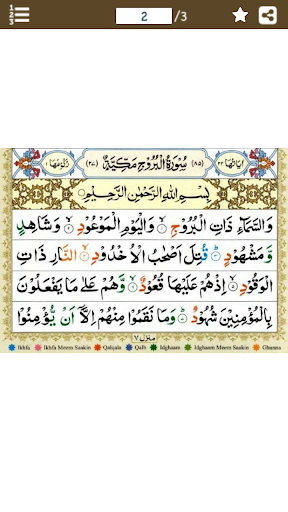 1 2 3
2 /3
اٰیَاتُهَا ٢٢ (٨٥) سُوْرَةُ الْبُرُوْجِ مَكِّيَّةٌ (٢٧) رُكُوْعُهَا ١
بِسْمِ اللّٰهِ الرَّحْمٰنِ الرَّحِيْمِ
وَالسَّمَآءِ ذَاتِ الْبُرُوْجِ ۙ١ وَالْيَوْمِ الْمَوْعُوْدِ ۙ٢ وَشَاهِدٍ
وَّمَشْهُوْدٍ ؕ٣ قُتِلَ اَصْحٰبُ الْاُخْدُوْدِ ۙ٤ النَّارِ ذَاتِ
الْوَقُوْدِ ۙ٥ اِذْ هُمْ عَلَيْهَا قُعُوْدٌ ۙ٦ وَّهُمْ عَلٰى مَا يَفْعَلُوْنَ
بِالْمُؤْمِنِيْنَ شُهُوْدٌ ؕ٧ وَمَا نَقَمُوْا مِنْهُمْ اِلَّاۤ اَنْ يُّؤْمِنُوْا
منزل ٧
Ikhfa Ikhfa Meem Saakin Qalqala Qalb Idghaam Idghaam Meem Saakin Ghunna